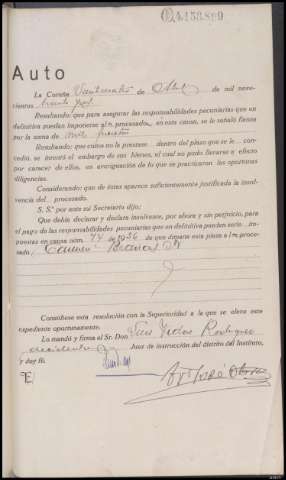 Auto
La Coruña de de mil nove-
cientos treinta y
Resultando: que para asegurar las responsabilidades pecuniarias que en
definitiva puedan imponerse al procesado, en esta causa, se le señaló fianza
por la suma de mil pesetas
Resultando: que como no la prestase dentro del plazo que se le con-
cedio, se trovó el embargo de sus bienes, el cual no pudo llevarse a efecto
por carecer de ellos, en averiguación de lo que se practicaron las oportunas
diligencias.
Considerando: que de éstas aparece suficientemente justificada la insol-
vencia del procesado.
S. S.ª por ante mi Secretario dijo:
Que debía declarar y declara insolvente, por ahora y sin perjuicio, para
el pago de las responsabilidades pecuniarias que en definitiva puedan serle im-
puestas en causa núm. 74 de 1936 de que dimana esta pieza a procesado,
Consúltese esta resolución con la Superioridad a la que se eleve este
expediente oportunamente.
Lo mandó y firma el Sr. Don Rodriguez
Juez de instrucción del distrito del Instituto,
y doy fé.